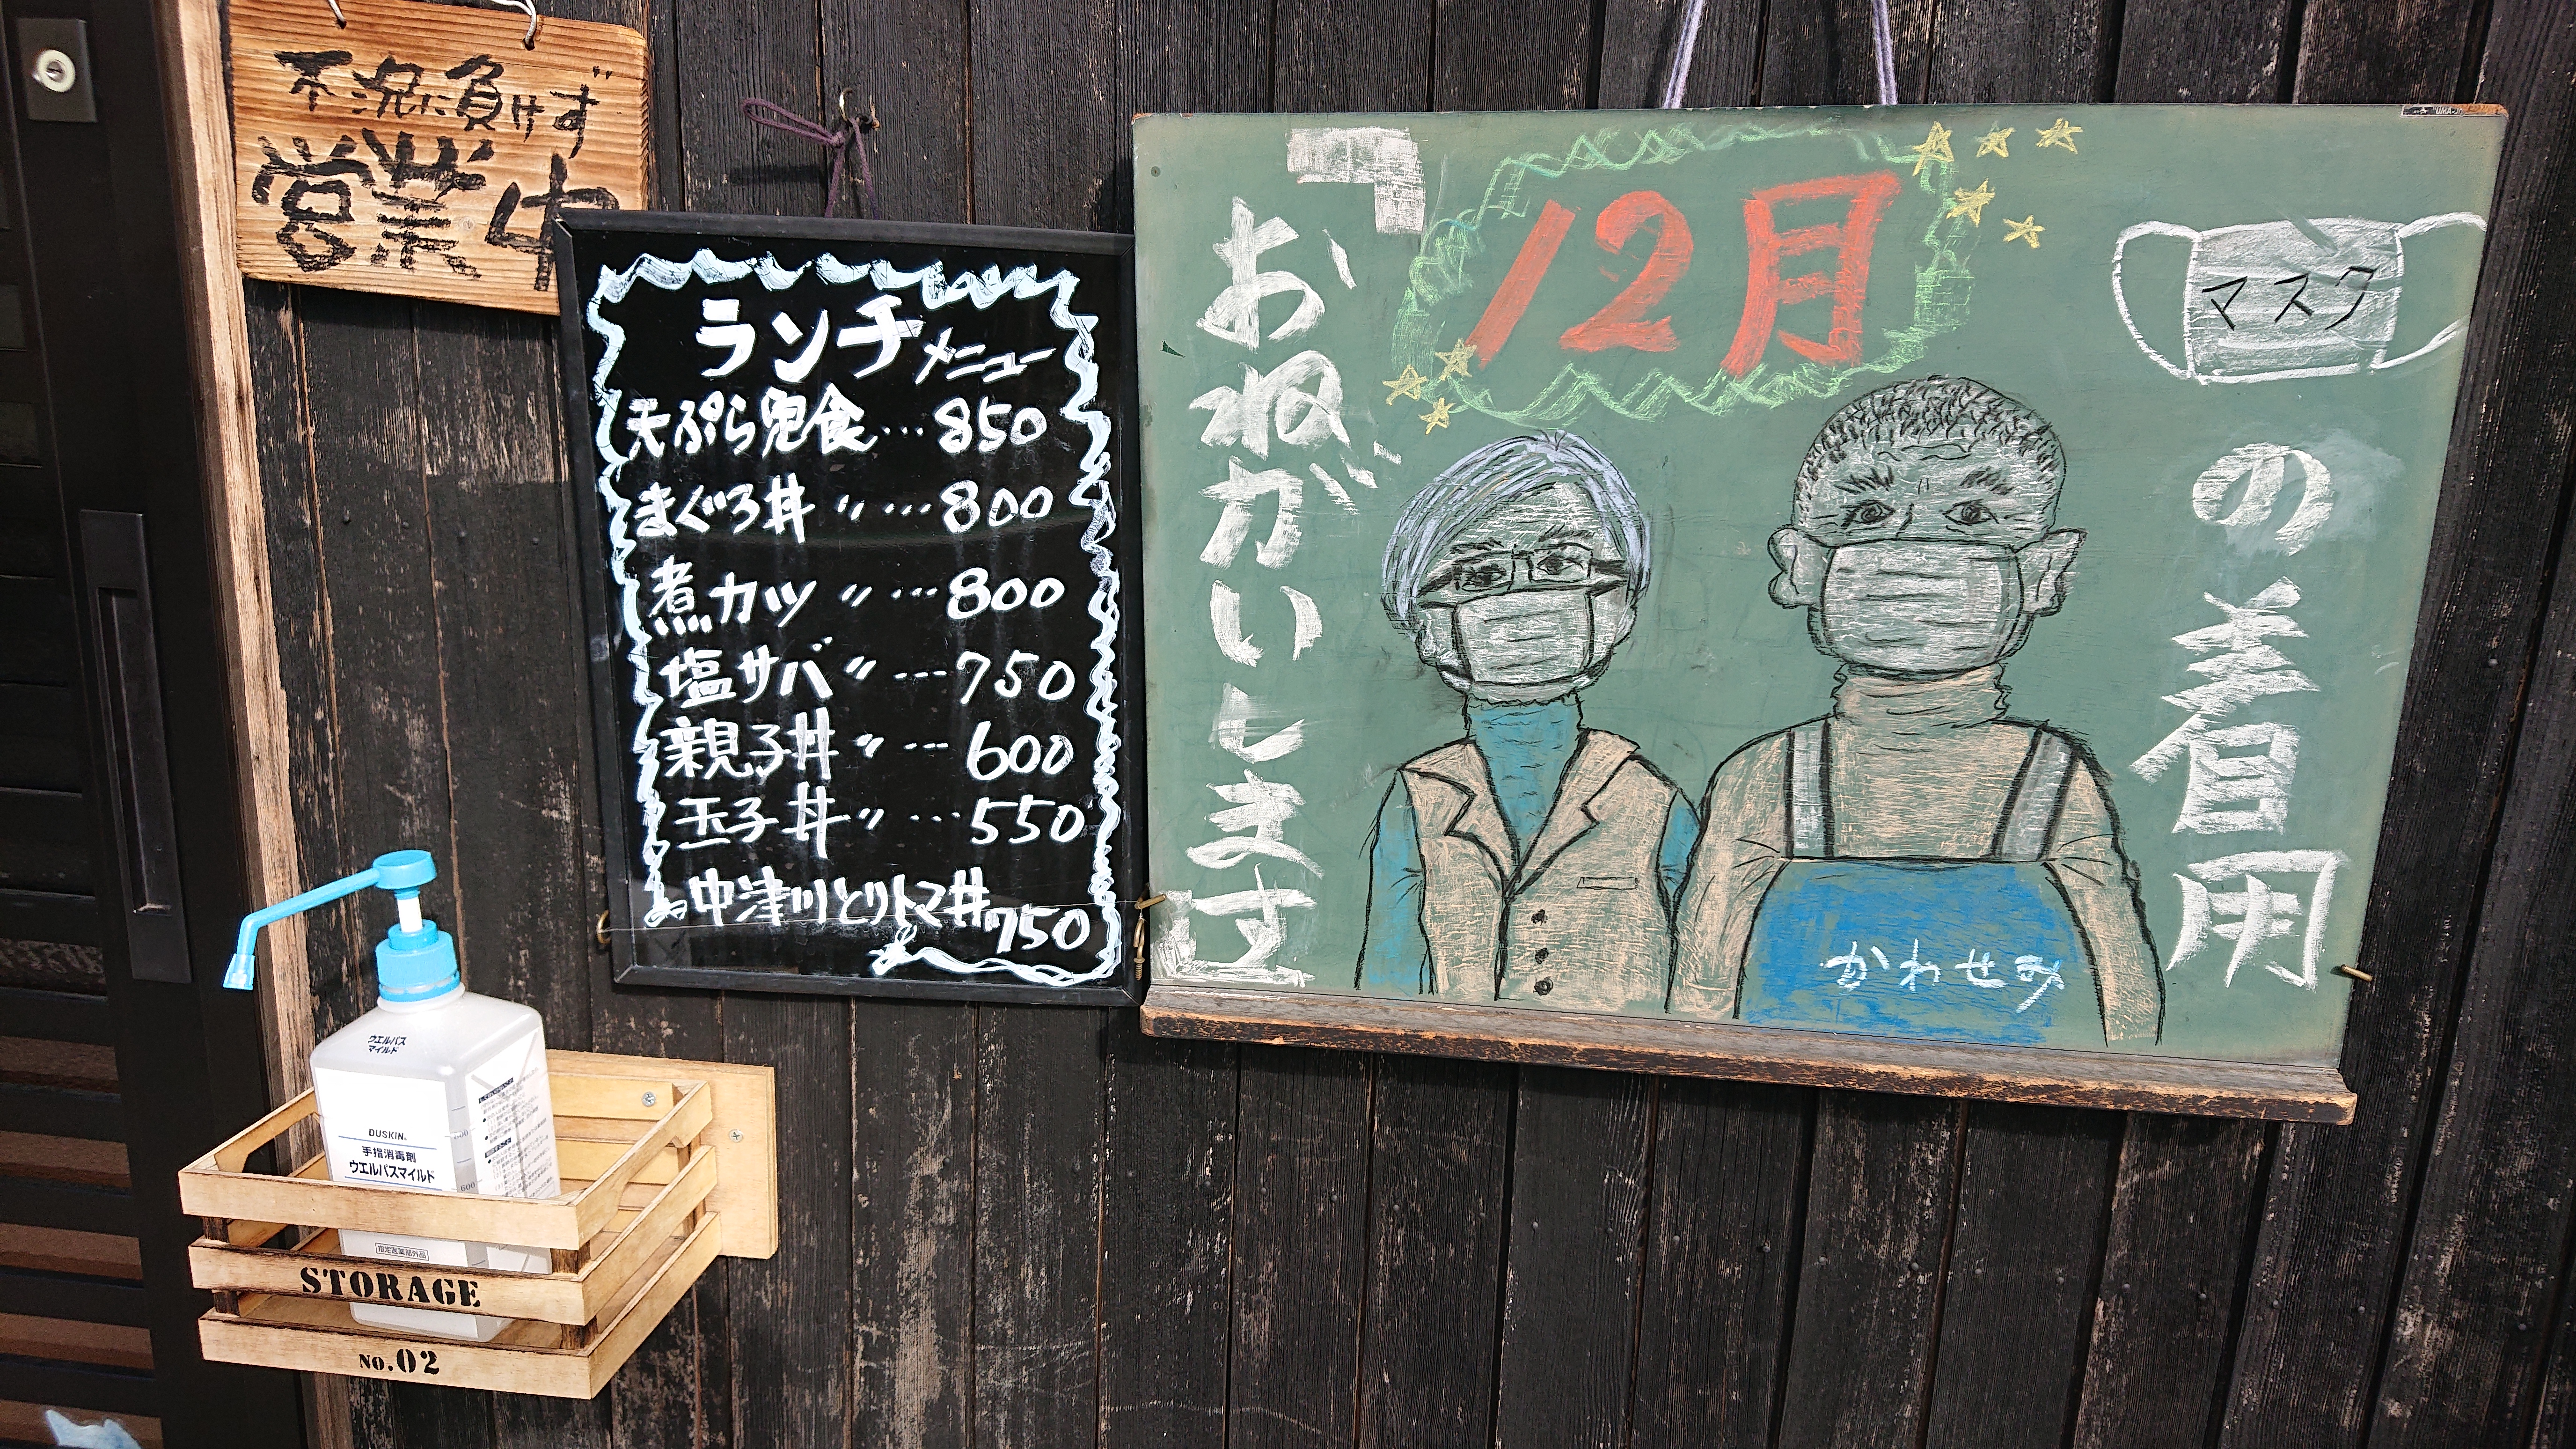 不況に負けず
営業中
ランチメニュー
天ぷら定食…850
まぐろ丼〃…800
煮カツ〃…800
塩サバ〃…750
親子丼〃…600
玉子丼〃…550
中津川とりトマ丼
750
12月
マスク
の着用
おねがいします
かわせみ
ウエルパス
マイルド
DUSKIN
手指消毒剤
ウエルパスマイルド
600
指定医薬部外品
STORAGE
No.02